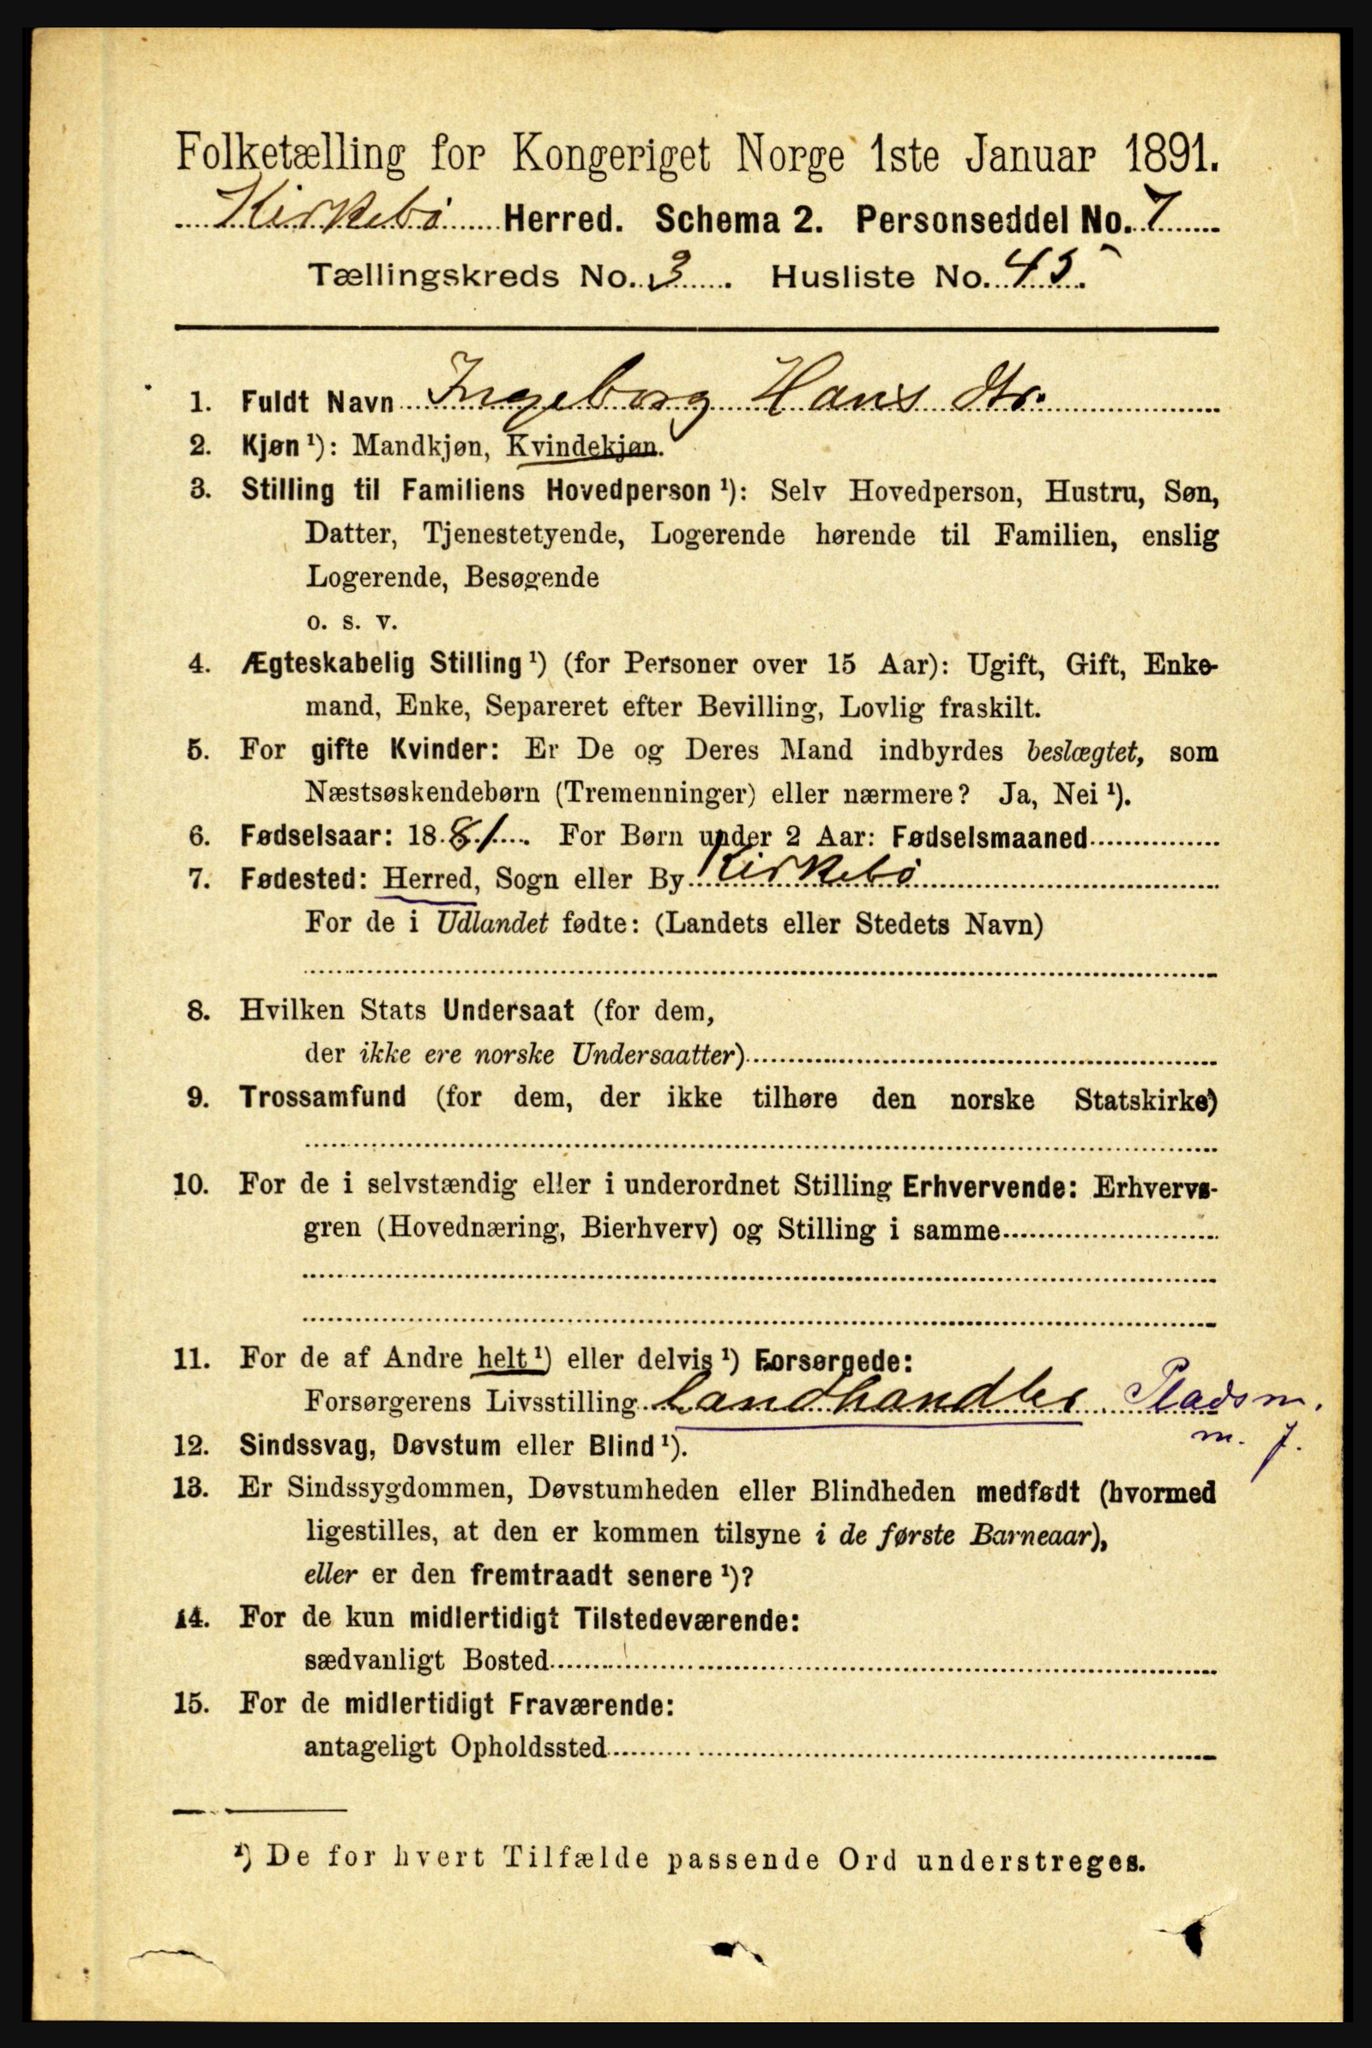 Folketælling for Kongeriget Norge 1ste Januar 1891.
Kirkebø Herred. Schema 2. Personseddel No. 7
Tællingskreds No. 3. Husliste No. 45.
1. Fuldt Navn Ingeborg Hans dtr.
2. Kjøn ¹): Mandkjøn, Kvindekjøn.
3. Stilling til Familiens Hovedperson ¹): Selv Hovedperson, Hustru, Søn,
Datter, Tjenestetyende, Logerende hørende til Familien, enslig
Logerende, Besøgende
o. s. v.
4. Ægteskabelig Stilling ¹) (for Personer over 15 Aar): Ugift, Gift, Enke-
mand, Enke, Separeret efter Bevilling, Lovlig fraskilt.
5. For gifte Kvinder: Er De og Deres Mand indbyrdes beslægtet, som
Næstsøskendebørn (Tremenninger) eller nærmere? Ja, Nei ¹).
6. Fødselsaar: 1881. For Børn under 2 Aar: Fødselsmaaned
7. Fødested: Herred, Sogn eller By Kirkebø
For de i Udlandet fødte: (Landets eller Stedets Navn)
8. Hvilken Stats Undersaat (for dem,
der ikke ere norske Undersaatter)
9. Trossamfund (for dem, der ikke tilhøre den norske Statskirke)
10. For de i selvstændig eller i underordnet Stilling Erhvervende: Erhvervs-
gren (Hovednæring, Bierhverv) og Stilling i samme
11. For de af Andre helt ¹) eller delvis ¹) Forsørgede:
Forsørgerens Livsstilling Landhandler Pladsm.
m. j.
12. Sindssvag, Døvstum eller Blind ¹).
13. Er Sindssygdommen, Døvstumheden eller Blindheden medfødt (hvormed
ligestilles, at den er kommen tilsyne i de første Barneaar),
eller er den fremtraadt senere ¹)?
14. For de kun midlertidigt Tilstedeværende:
sædvanligt Bosted
15. For de midlertidigt Fraværende:
antageligt Opholdssted
¹) De for hvert Tilfælde passende Ord understreges.